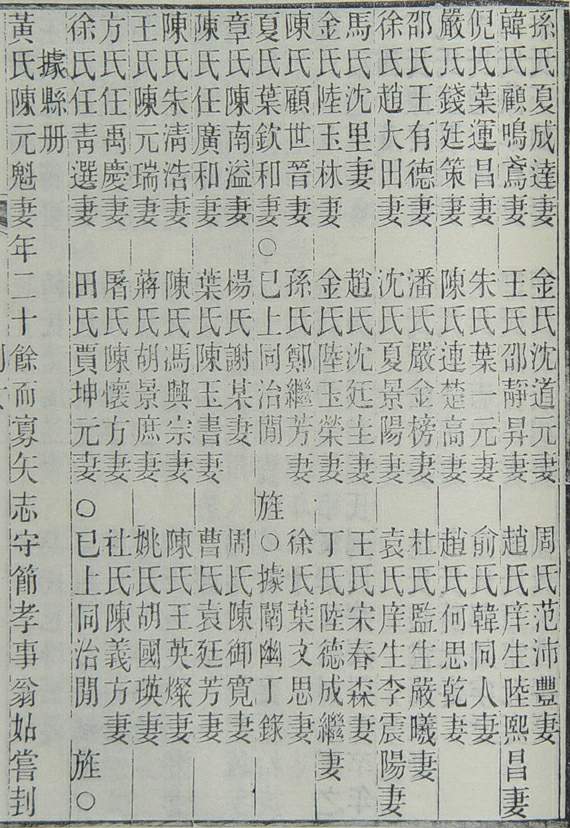 孫氏夏成達妻 金氏沈道元妻 周氏范沛豐妻
韓氏顧鳴鳶妻 王氏邵靜昇妻 趙氏庠生陸熙昌妻
倪氏葉運昌妻 朱氏葉一元妻 俞氏韓同人妻
嚴氏錢廷策妻 陳氏連楚高妻 趙氏何思乾妻
邵氏王有德妻 潘氏嚴金榜妻 杜氏監生嚴曦妻
徐氏趙大田妻 沈氏夏景陽妻 袁氏庠生李震陽妻
馬氏沈里妻 趙氏沈廷圭妻 王氏宋春森妻
金氏陸玉林妻 金氏陸玉榮妻 丁氏陸德成繼妻
陳氏顧世晉妻 孫氏鄭繼芳妻 徐氏葉文思妻
夏氏葉欽和妻○已上同治閒 旌○據闡幽丁錄
章氏陳南溢妻 楊氏謝某妻 周氏陳御寬妻
陳氏任廣和妻 葉氏陳玉書妻 曹氏袁廷芳妻
陳氏朱淸浩妻 陳氏馮興宗妻 陳氏王英燦妻
王氏陳元瑞妻 蔣氏胡景庶妻 姚氏胡國瑛妻
方氏任禹慶妻 屠氏陳懷方妻 社氏陳義方妻
徐氏任靑選妻 田氏賈坤元妻○已上同治閒 旌○
據縣册
黃氏陳元魁妻年二十餘而寡矢志守節孝事翁姑嘗刲